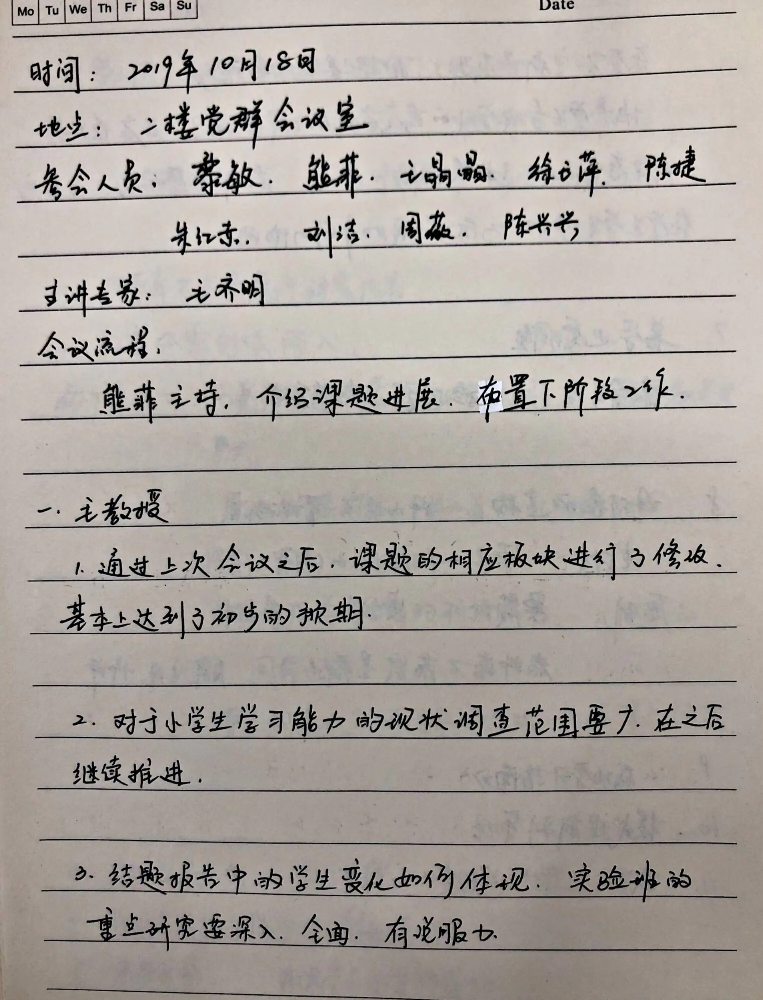 Mo Tu We Th Fr Sa Su
Date
时间：2019年10月18日
地点：二楼党群会议室
参会人员：蔡敏、熊菲、王晶晶、徐方萍、陈捷
朱红赤、刘洁、周薇、陈兴兴
主讲专家：毛齐明
会议流程：
熊菲主持，介绍课题进展、布置下阶段工作。
一、毛教授
1. 通过上次会议之后，课题的相应板块进行了修改，
基本上达到了初步的预期。
2. 对于小学生学习能力的现状调查范围要广，在之后
继续推进。
3. 结题报告中的学生变化如何体现，实验班的
重点研究要深入、全面、有说服力。